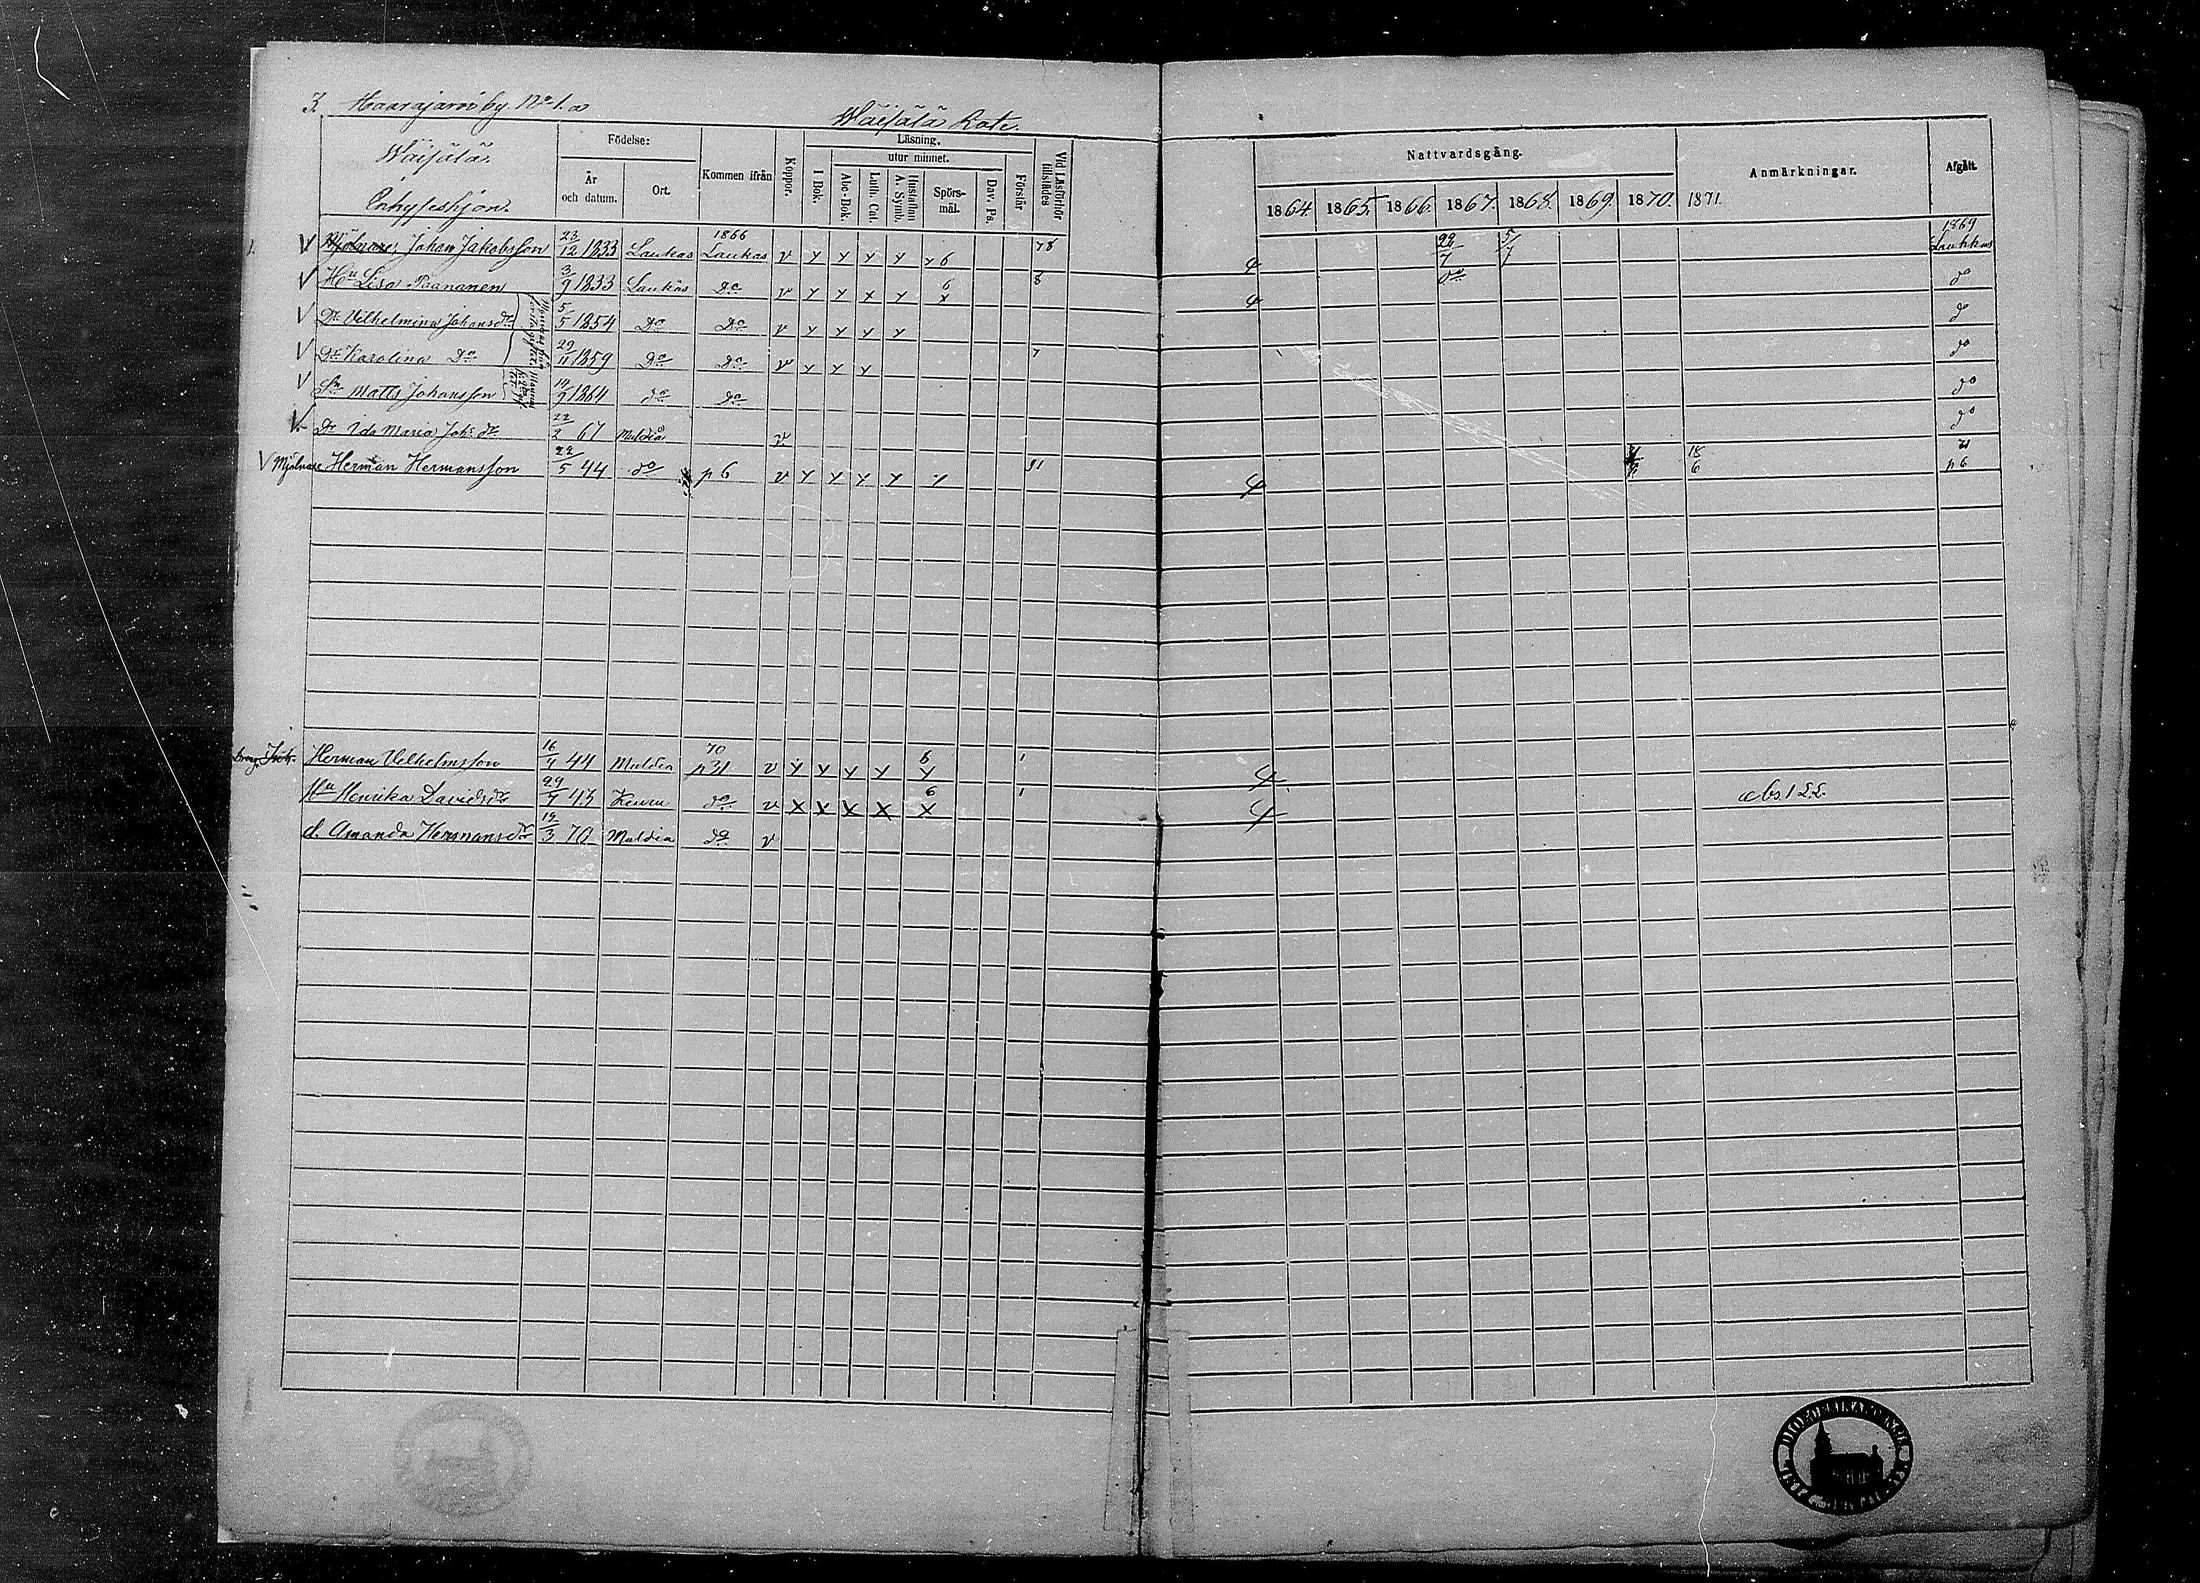 3. Haarajärvi by. No 1. a
Wäisälä Rote.
Wäisälä.
Inhyseshjon.
Födelse: År och datum. Ort.
Kommen ifrån
Koppor.
Läsning. I Bok. utur minnet. Abc-Bok Luth. Cat. Hustaflan A. Symb. Spörsmål. Dav. Ps. Förstår
Vid Läsförhör tillstädes
Nattvardsgång. 1864. 1865. 1866. 1867. 1868. 1869 1870. 1871.
Anmärkningar.
Afgått.
1. V Mjölnare Johan Jakobsson 23/12 1833 Laukas 1866 Laukas v y y y y y 6 78 22/7 5/7 1869 Laukkas
V Hu Lisa Paananen 3/9 1833 Laukas Do v y y x y 6 x 8 do do
V Dr Vilhelmina Johansdr 5/5 1854 Do Do v y y y y do
V Dr Karolina Do 29/11 1859 Do Do v y y y 7 do
V Sn Matts Johansson 1864 do do do
V. Dr Ida Maria Johsdr 22/2 67 Muldia v do
V Mjölnare Herman Hermansson 22/5 44 do p 6 v y y y y y 91 18/6 71 p 6
Herman Vilhelmsson 16/4 44 Muldia 70 p 31 v y y y y 6 y 1
Hu Henrika Davidsdr 29/4 43 Keuru do v x x x x 6 x 1
d. Amanda Hermansdr 19/3 70 Muldia do v